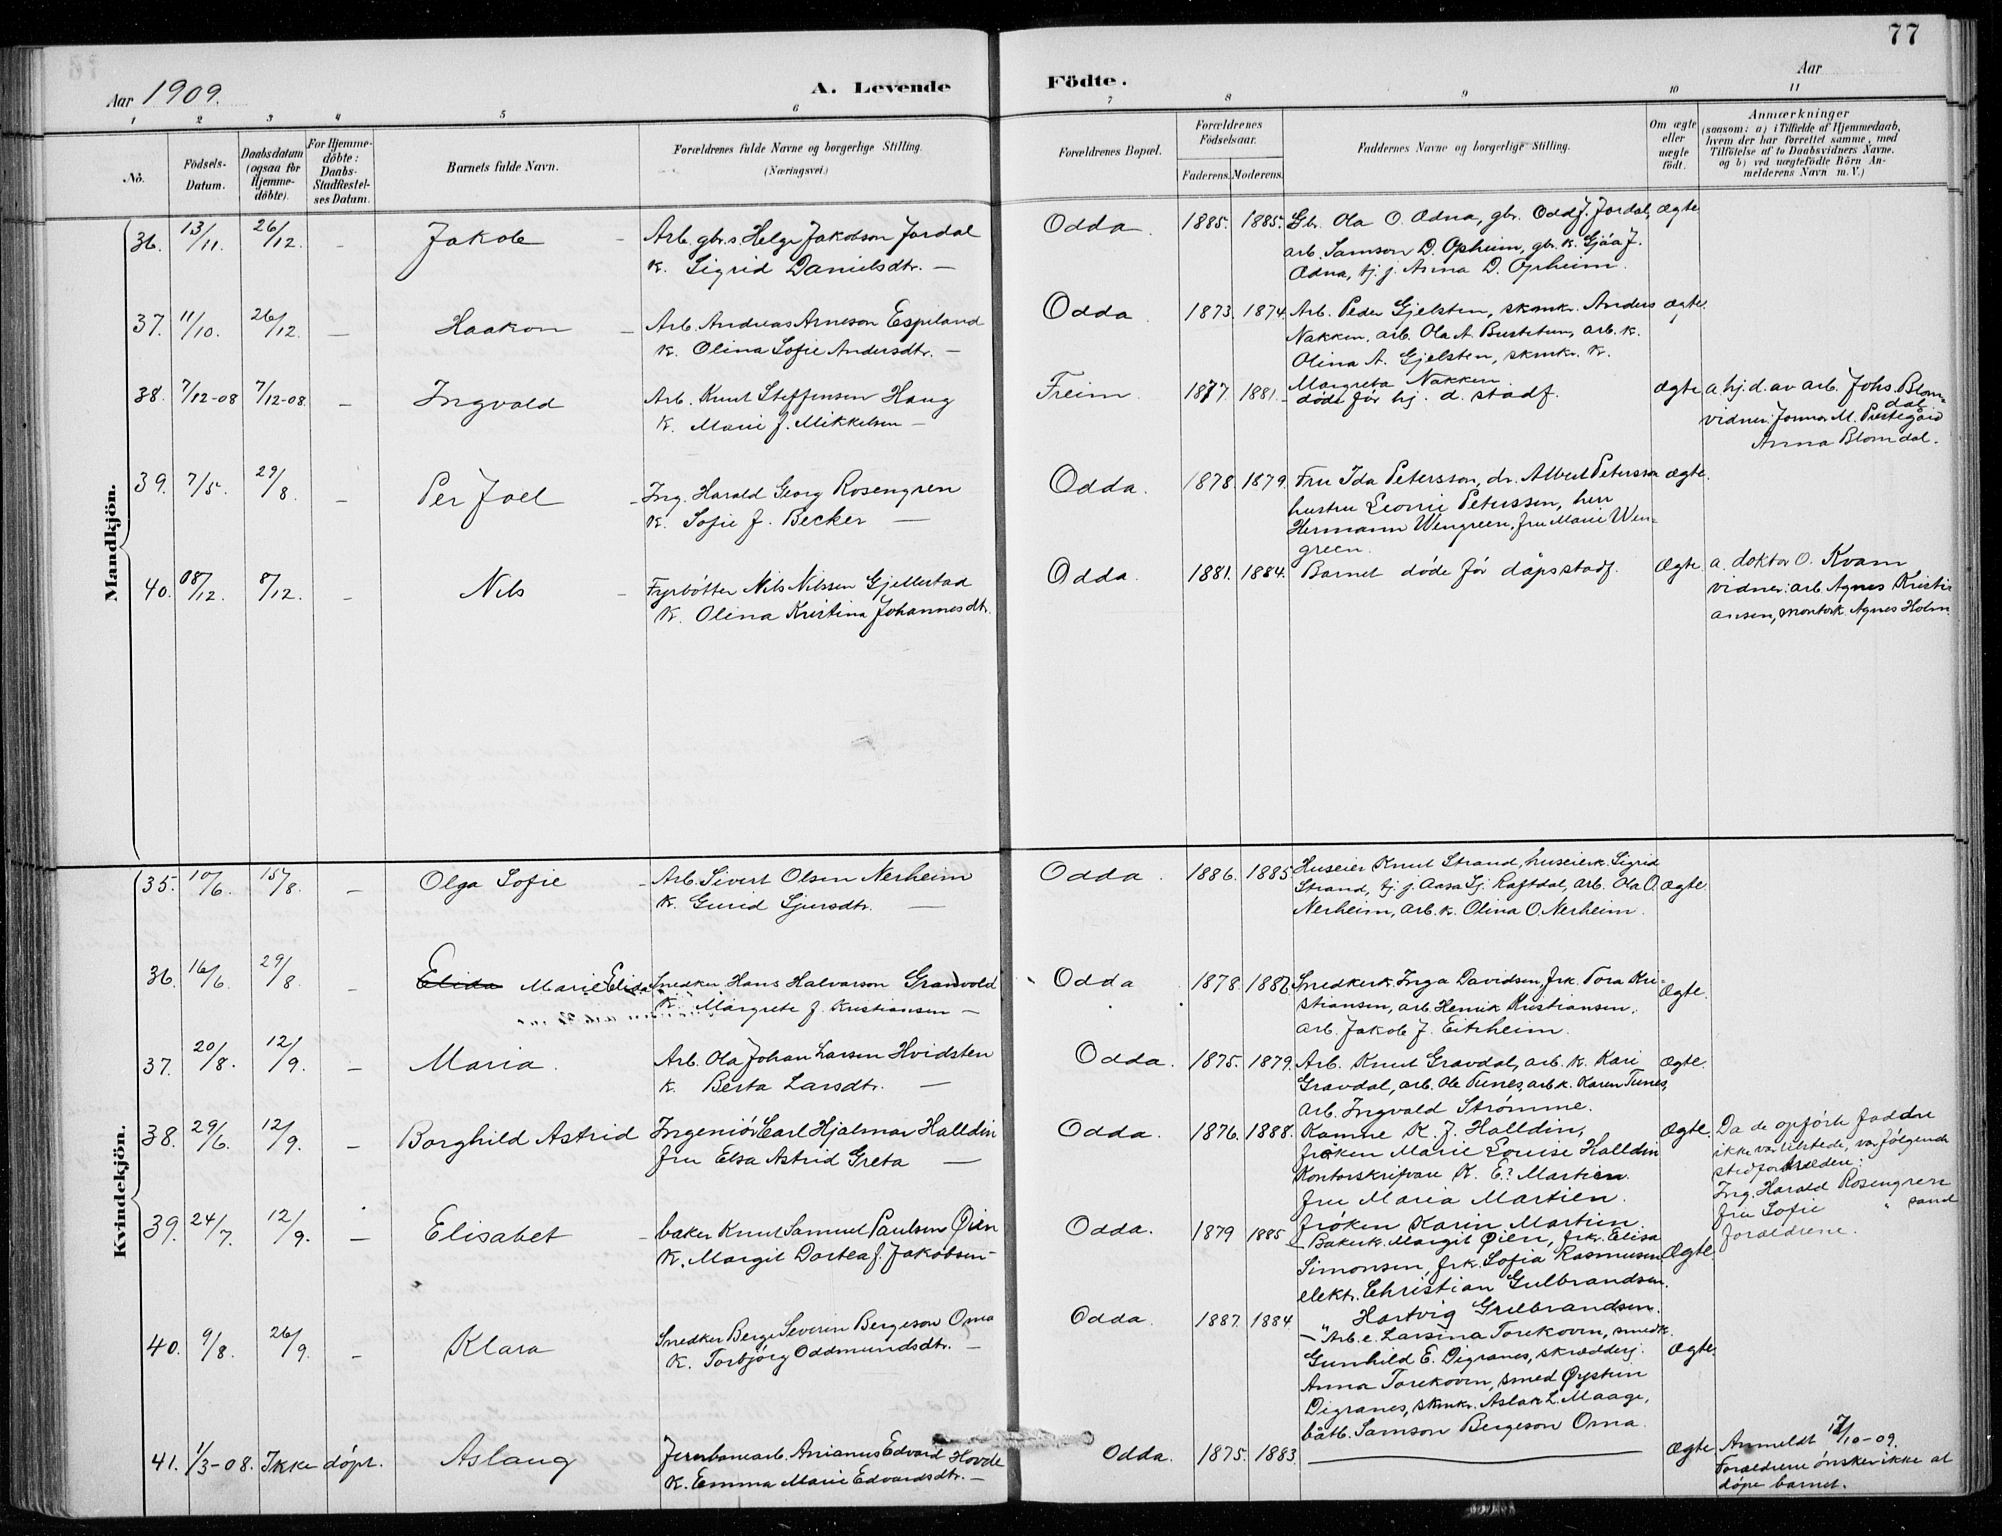 77
Aar 1909.
A. Levende Födte.
Aar
1 2 3 4 5 6 7 8 9 10 11
No.
Födsels-Datum.
Daabsdatum (ogsaa for Hjemme-döbte).
For Hjemme-döbte: Daabs-Stadfæstel-ses Datum.
Barnets fulde Navn.
Forældrenes fulde Navne og borgerlige Stilling.
(Næringsvei.)
Forældrenes Bopæl.
Forældrenes Födselsaar.
Faderens. Moderens.
Faddernes Navne og borgerlige Stilling.
Om ægte eller uægte født.
Anmærkninger
(saasom: a) i Tilfælde af Hjemmedaab,
hvem der har forrettet samme, med
Tilföielse af to Daabsvidners Navne.
og b) ved uægtefödte Börn An-
melderens Navn m. V.)
Mandkjön.
36. 13/11. 26/12. – Jakob – Arb. gbr.s. Helge Jakobson Jordal
k. Sigrid Danielsdtr. –
Odda. 1885. 1885. Gbr. Ola O. Ædna, gbr. Odd J. Jordal, Ægte
arb. Samson D. Opheim, gbr. k. Gjöa J.
Ædna, tj. j. Anna D. Opheim.
37. 11/10. 26/12. – Haakon – Arb. Andreas Arneson Espeland
k. Olina Sofie Andersdtr. –
Odda. 1873. 1874. Arb. Peder Gjelsten, skomk. Anders Ægte.
Nakken, arb. Ola A. Bustetun, arb. k.
Olina A. Gjelsten, skmkr. k.
Margreta Nakken.
38. 7/12-08 7/12-08. – Ingvald Arb. Knut Steffensen Haug
k. Marie f. Mikkelsen –
Freim. 1877. 1881. døde før hj. d. stadf. Ægte a. hj. d. av arb. Johs. Blom-
dal
vidner: M. Prestegård
Anna Blomdal.
39. 7/5. 29/8. – Per Joel – Ing. Harald Georg Rosengren
k. Sofie f. Becker –
Odda. 1878. 1879. Fru Ida Petersson, dr. Albert Petersson Ægte.
hustru Leonie Petersson, herr
Hermann Wengreen, fru Marie Wen-
green.
40. 08/12. 8/12. – Nils – Fyrbötter Nils Nilssen Gjellestad
k. Olina Kristina Johannesdtr.
Odda. 1881. 1884. Barnet døde før dåpsstadf. Ægte a. doktor O. Kvam
vidner: arb. Agnes Kristi-
ansen, montør k. Agnes Holm.
Kvindekjön.
35. 10/6. 15/8. – Olga Sofie – Arb. Sivert Olsen Nerheim
k. Gurid Sjursdtr. –
Odda. 1886. 1885. Huseier Knut Strand, huseierk. Sigrid
Strand, tj. j. Aasa Sj. Raftdal, arb. Ola O. Ægte.
Nerheim, arb. k. Olina O. Nerheim.
36. 16/6. 29/8. – Elida Marie Elida Snedker Hans Halvorson Granvold
k. Margrete f. Kristiansen –
Odda 1878. 1882. Snedkerk. Inga Davidsen, frk. Tora Kri-
stiansen, arb. Henrik Kristiansen, Ægte.
arb. Jakob J. Eitrheim.
37. 20/8. 12/9. – Maria. Arb. Ola Johan Larsen Hvidsten
k. Berta Larsdtr. –
Odda. 1875. 1879. Arb. Knut Gravdal, arb. k. Kari Ægte.
Gravdal, arb. Ole Tunes, arb. k. Karen Tunes,
arb. Ingvald Strømme.
38. 29/6. 12/9. – Borghild Astrid Ingeniør Carl Hjalmar Halldin
fru Elsa Astrid Greta –
Odda. 1876. 1888. K. J. Halldin, Ægte. Da de opførte faddre
frøken Marie Louise Halldin ikke var tilstede, var følgende
Kontorskrifvare K. E. Martien stedfortrædere:
fru Maria Martien. Ing. Harald Rosengren
frøken Karin Martien. fru Sofie " samt
forældrene.
39. 24/7. 12/9. – Elisabet – baker Knut Samuel Paulsen Øien
k. Margit Dortea f. Jakobsen –
Odda. 1879 1885 – Bakerk. Margit Øien, frk. Elisa
Simonsen, frk. Sofia Rasmussen Ægte.
elektr. Christian Gulbrandsen.
Hartvig Gulbrandsen.
40. 9/8. 26/9. – Klara Snedker Berge Severin Bergeson Oma
k. Torbjørg Oddmundsdtr. –
Odda. 1887. 1884 – Arb. e. Larsina Torekoven, smedk.
Gunhild E. Digranes, skrædderj. Ægte.
Anna Torekoven, smed Øystein
Digranes, skmkr. Aslak L. Maage,
båtb. Samson Bergeson Oma.
41. 1/3-08. Ikke döpt. Aslaug Jernbanearb. Anianus Edvard Hovde
k. Emma Marie Edvardsdtr. –
Odda. 1875. 1883. Ægte Anmeldt 12/10-09.
Forældrene ønsker ikke at
døpe barnet.